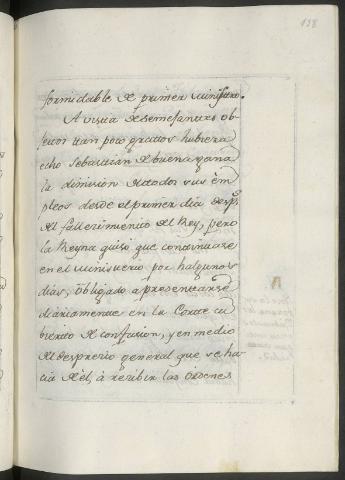 138
formidable de primer ministro.
A vista de semejantes ob-
jetos tan poco gratos hubiera
echo Sebastian de buena gana
la dimision de todos sus em-
pleos desde el primer dia desp.s
del fallecimiento del Rey, pero
la Reyna quiso que continuase
en el ministerio por halgunos
dias, obligado a presentarse
diariamente en la Corte cu-
bierto de confusion, y en medio
del desprecio general que se ha-
cia de el, à recibir las ordenes